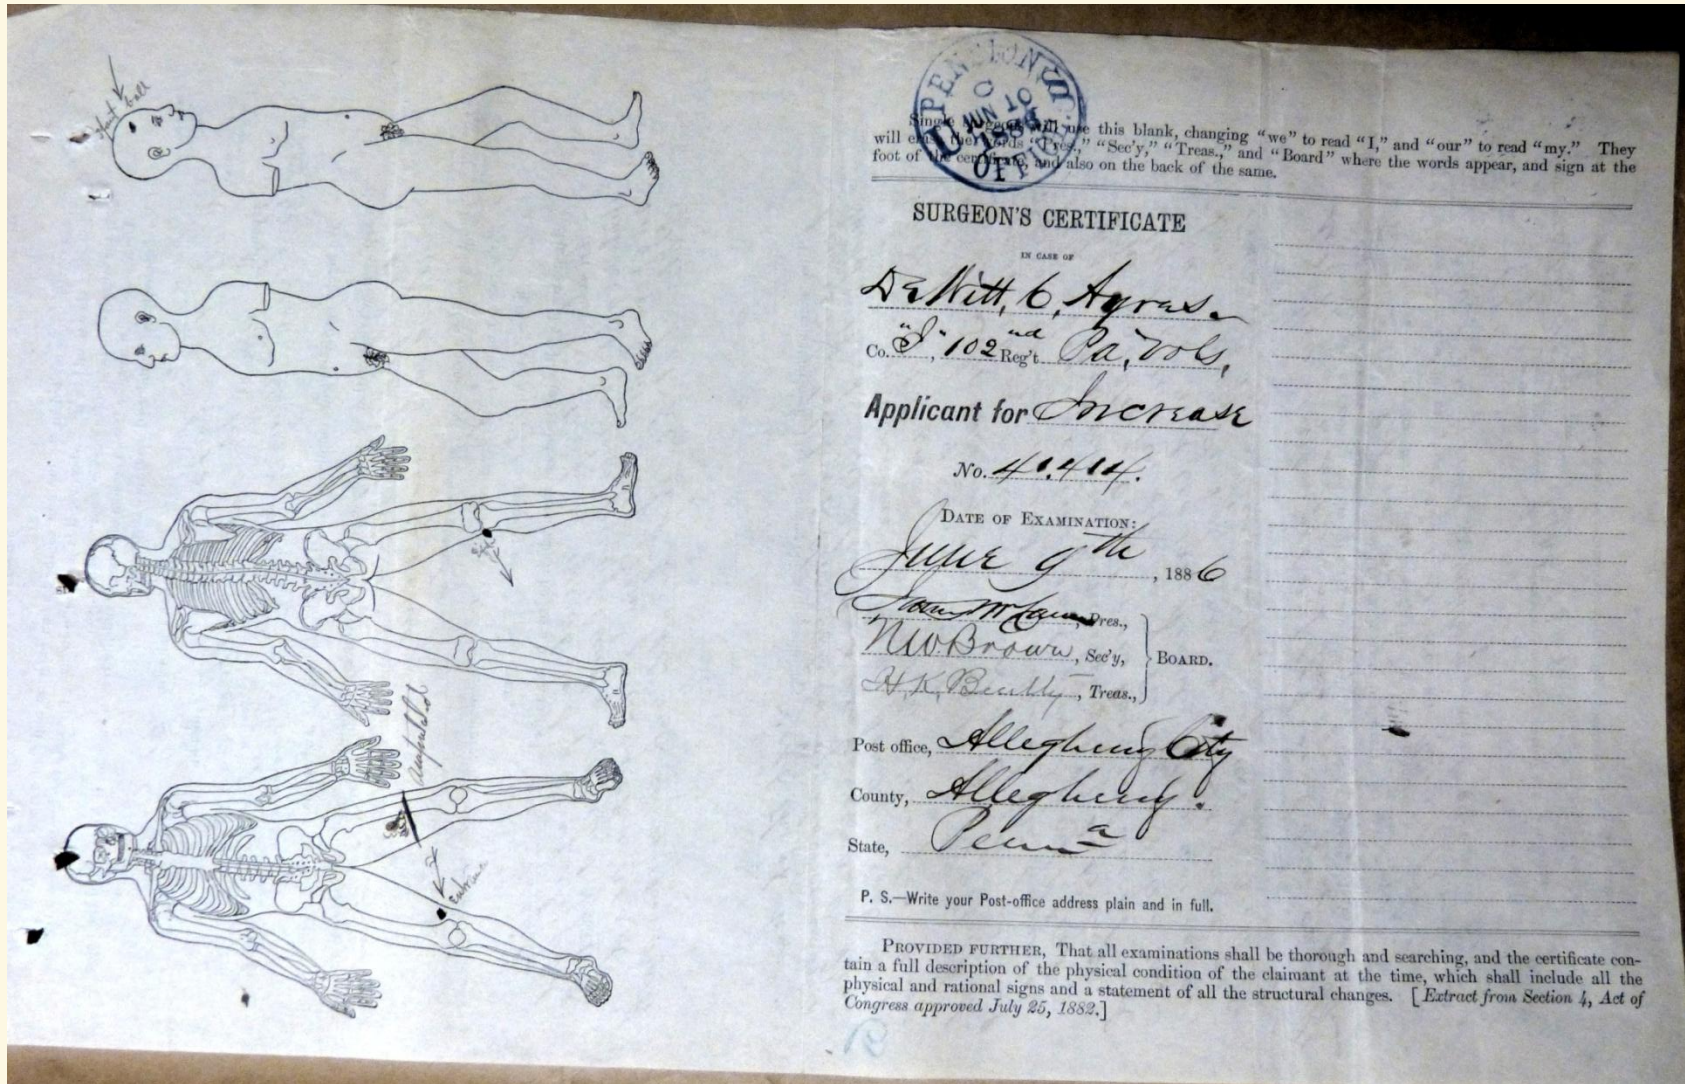 ball
Exit
Amputated
Entrance
PENSION
JUN 10
1886
OFFICE
Single surgeons will use this blank, changing "we" to read "I," and "our" to read "my." They
will erase the words "Pres.," "Sec'y," "Treas.," and "Board" where the words appear, and sign at the
foot of the certificate, and also on the back of the same.
SURGEON'S CERTIFICATE
IN CASE OF
DeWitt, C, Ayres.
Co. "I", 102nd Reg't Pa, Vols,
Applicant for Increase
No. 41.414.
DATE OF EXAMINATION:
June 9th, 1886
, Pres.,
N W Brown, Sec'y,
BOARD.
H. K, , Treas.,
Post office, Allegheny City
County, Allegheny.
State, Penna
P. S.—Write your Post-office address plain and in full.
PROVIDED FURTHER, That all examinations shall be thorough and searching, and the certificate con-
tain a full description of the physical condition of the claimant at the time, which shall include all the
physical and rational signs and a statement of all the structural changes. [Extract from Section 4, Act of
Congress approved July 25, 1882.]